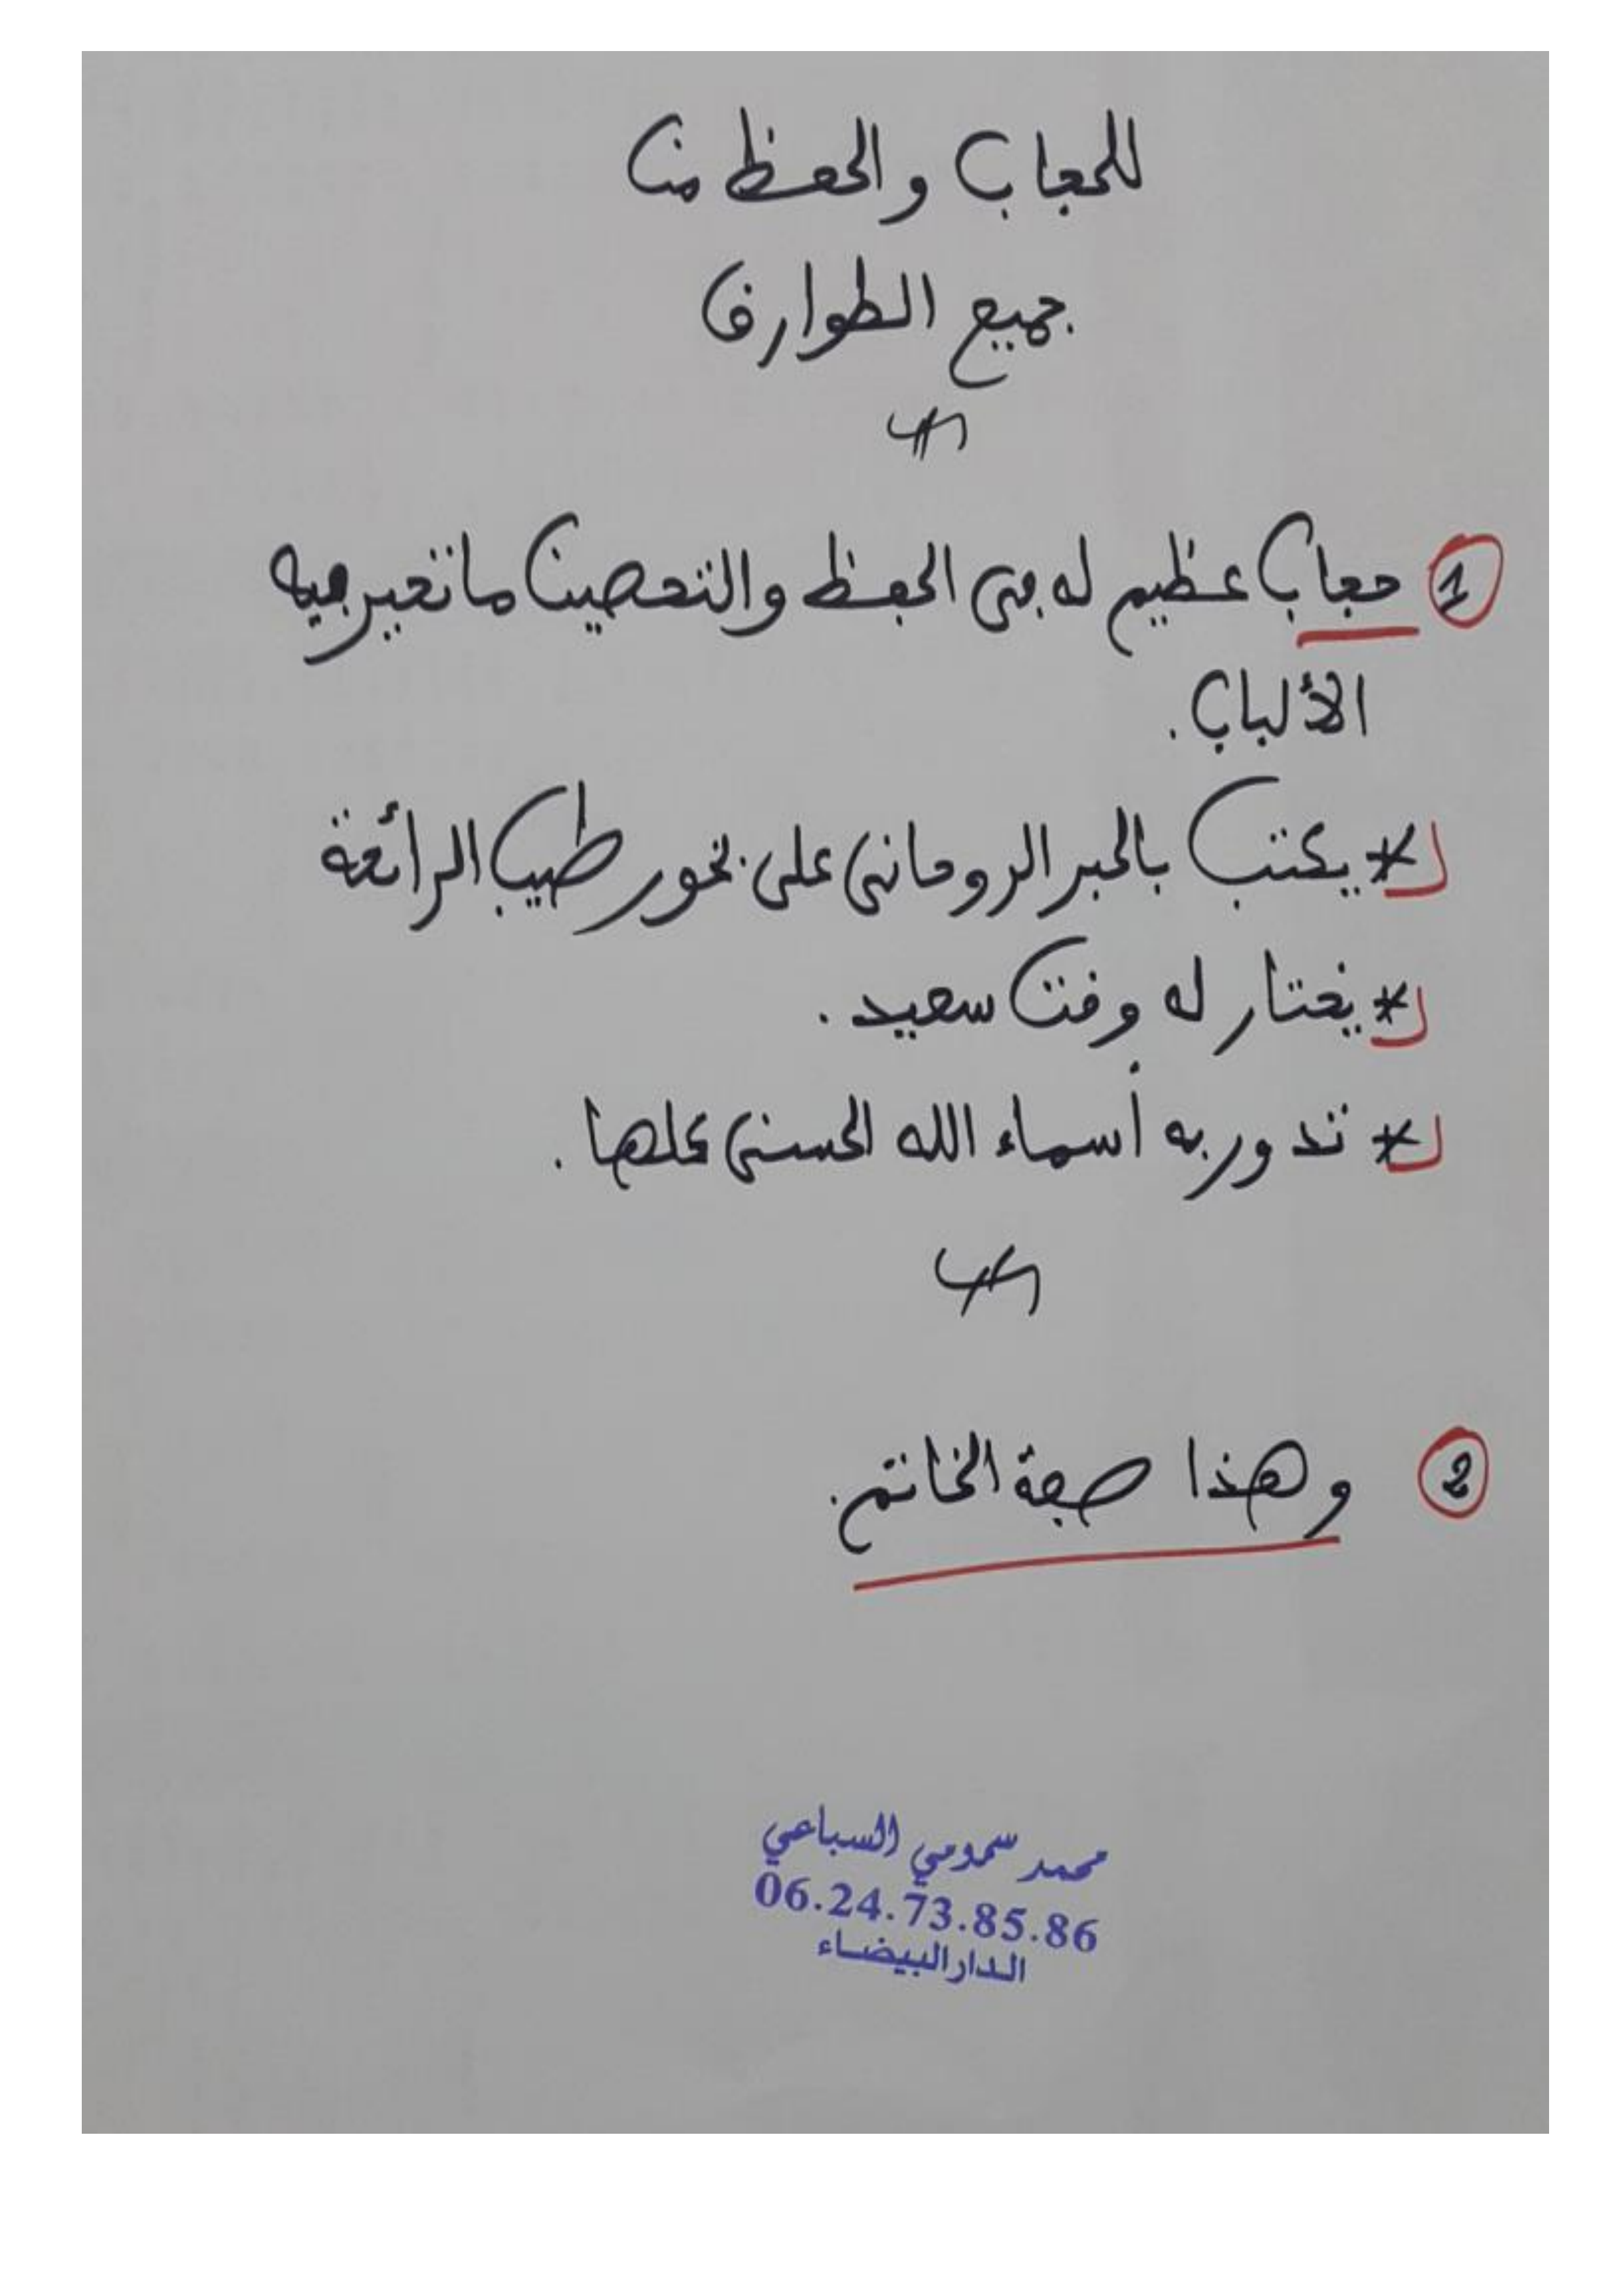 للحجاب والحفظ من
جميع الطوارق
1 حجاب عظيم له في الحفظ والتحصين ما تحير فيه
الألباب.
* يكتب بالحبر الروحاني على بخور طيب الرائحة
* يختار له وقت سعيد.
* تدور به أسماء الله الحسنى كلها.
2 وهذا صفة الخاتم.
محمد سمومي السباعي
06.24.73.85.86
الدار البيضاء